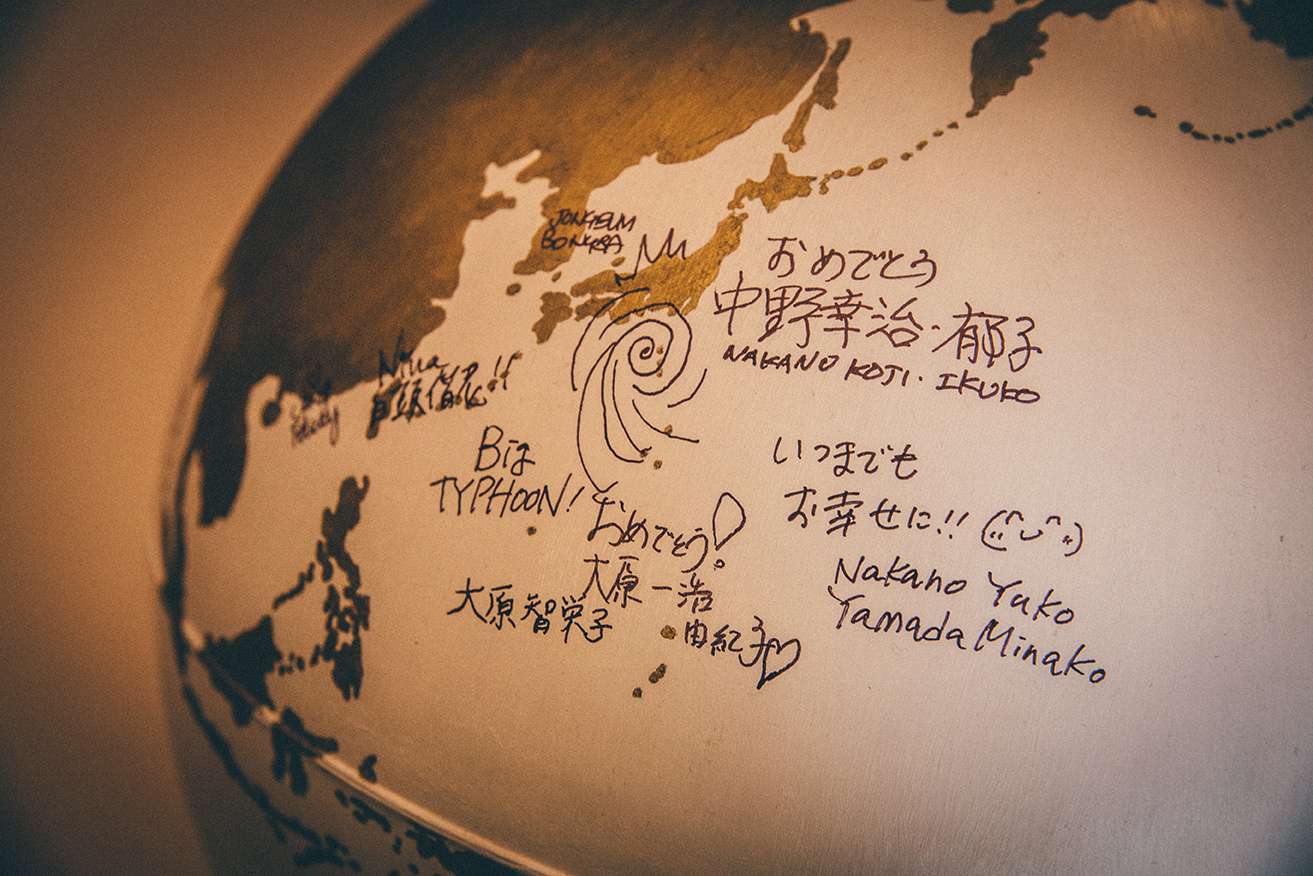 JONGEUM
おめでとう
中野幸治・郁子
NAKANO KOJI・IKUKO
Nina
Big
TYPHOON!
いつまでも
お幸せに!!
Nakano Yuko
Yamada Minako
おめでとう!
大原一浩
由紀子
大原智栄子